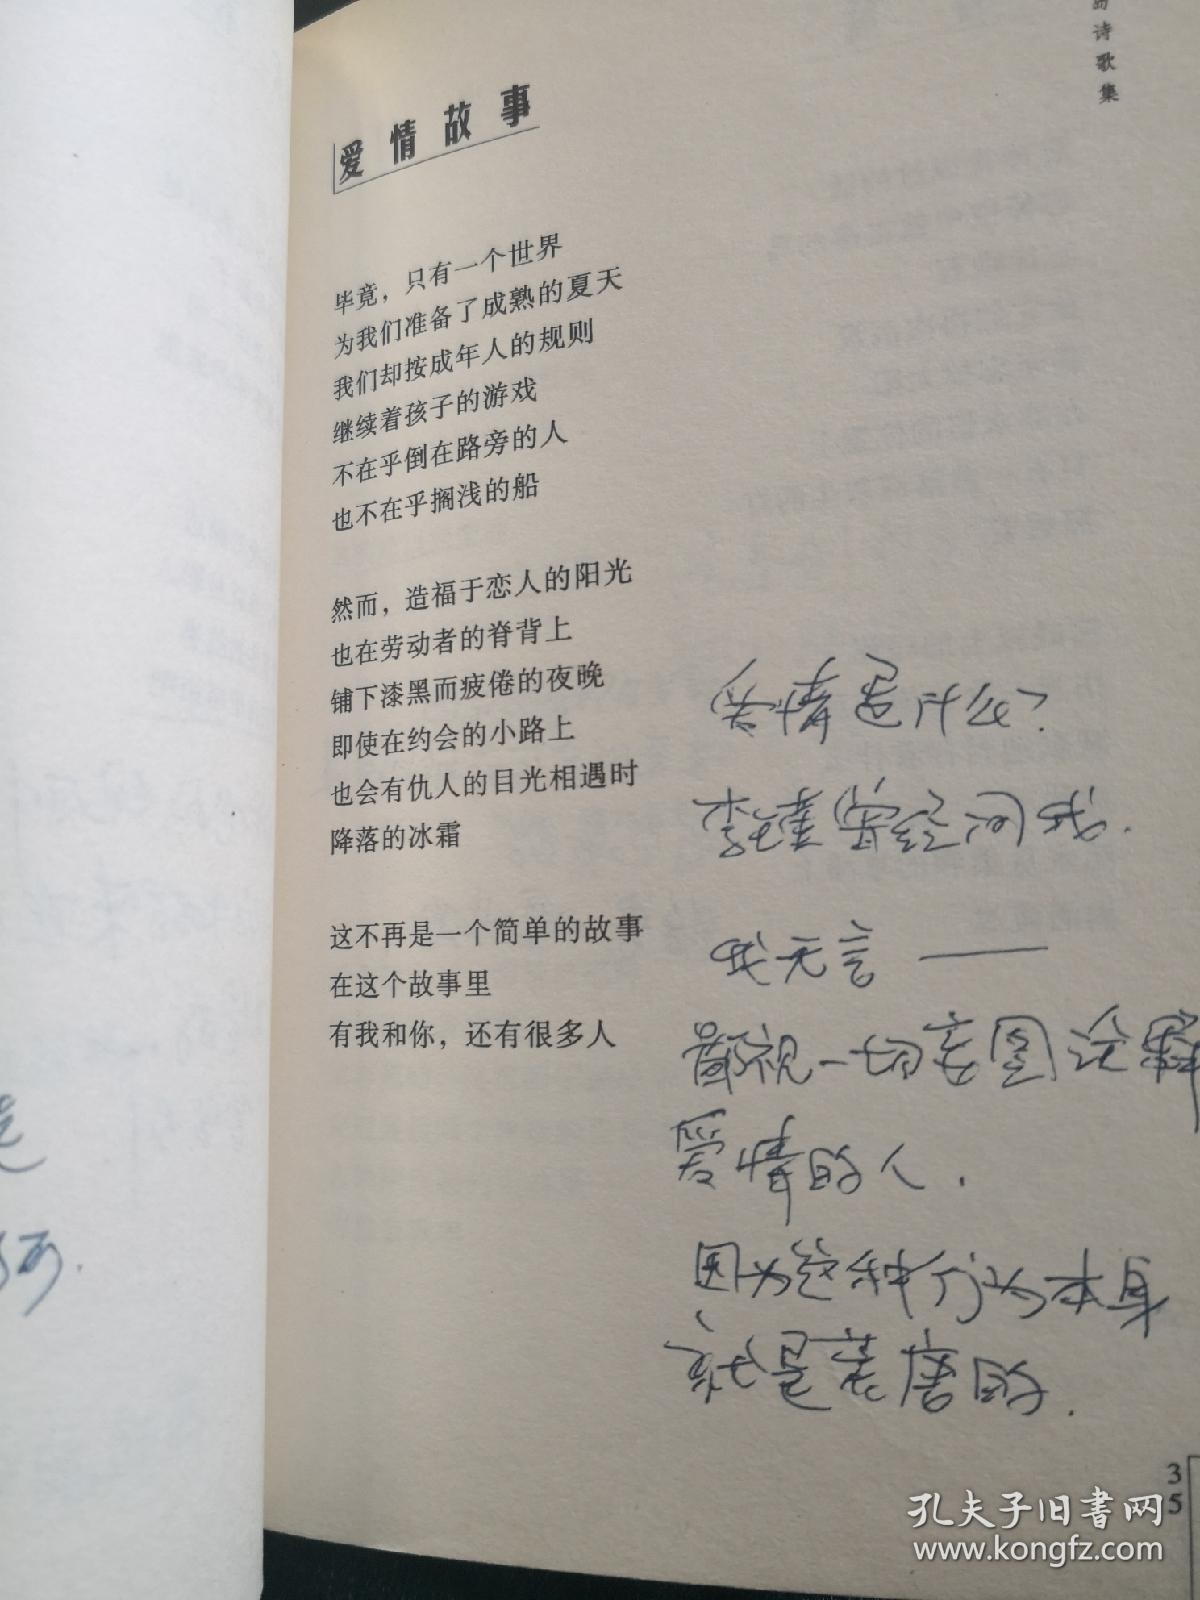 诗歌集
爱情故事
毕竟，只有一个世界
为我们准备了成熟的夏天
我们却按成年人的规则
继续着孩子的游戏
不在乎倒在路旁的人
也不在乎搁浅的船
然而，造福于恋人的阳光
也在劳动者的脊背上
铺下漆黑而疲倦的夜晚
即使在约会的小路上
也会有仇人的目光相遇时
降落的冰霜
这不再是一个简单的故事
在这个故事里
有我和你，还有很多人
爱情是什么？
李瑾曾经问我.
我无言——
鄙视一切妄图诠释
爱情的人.
因为这种行为本身
就是荒唐的.
35
孔夫子旧书网
www.kongfz.com